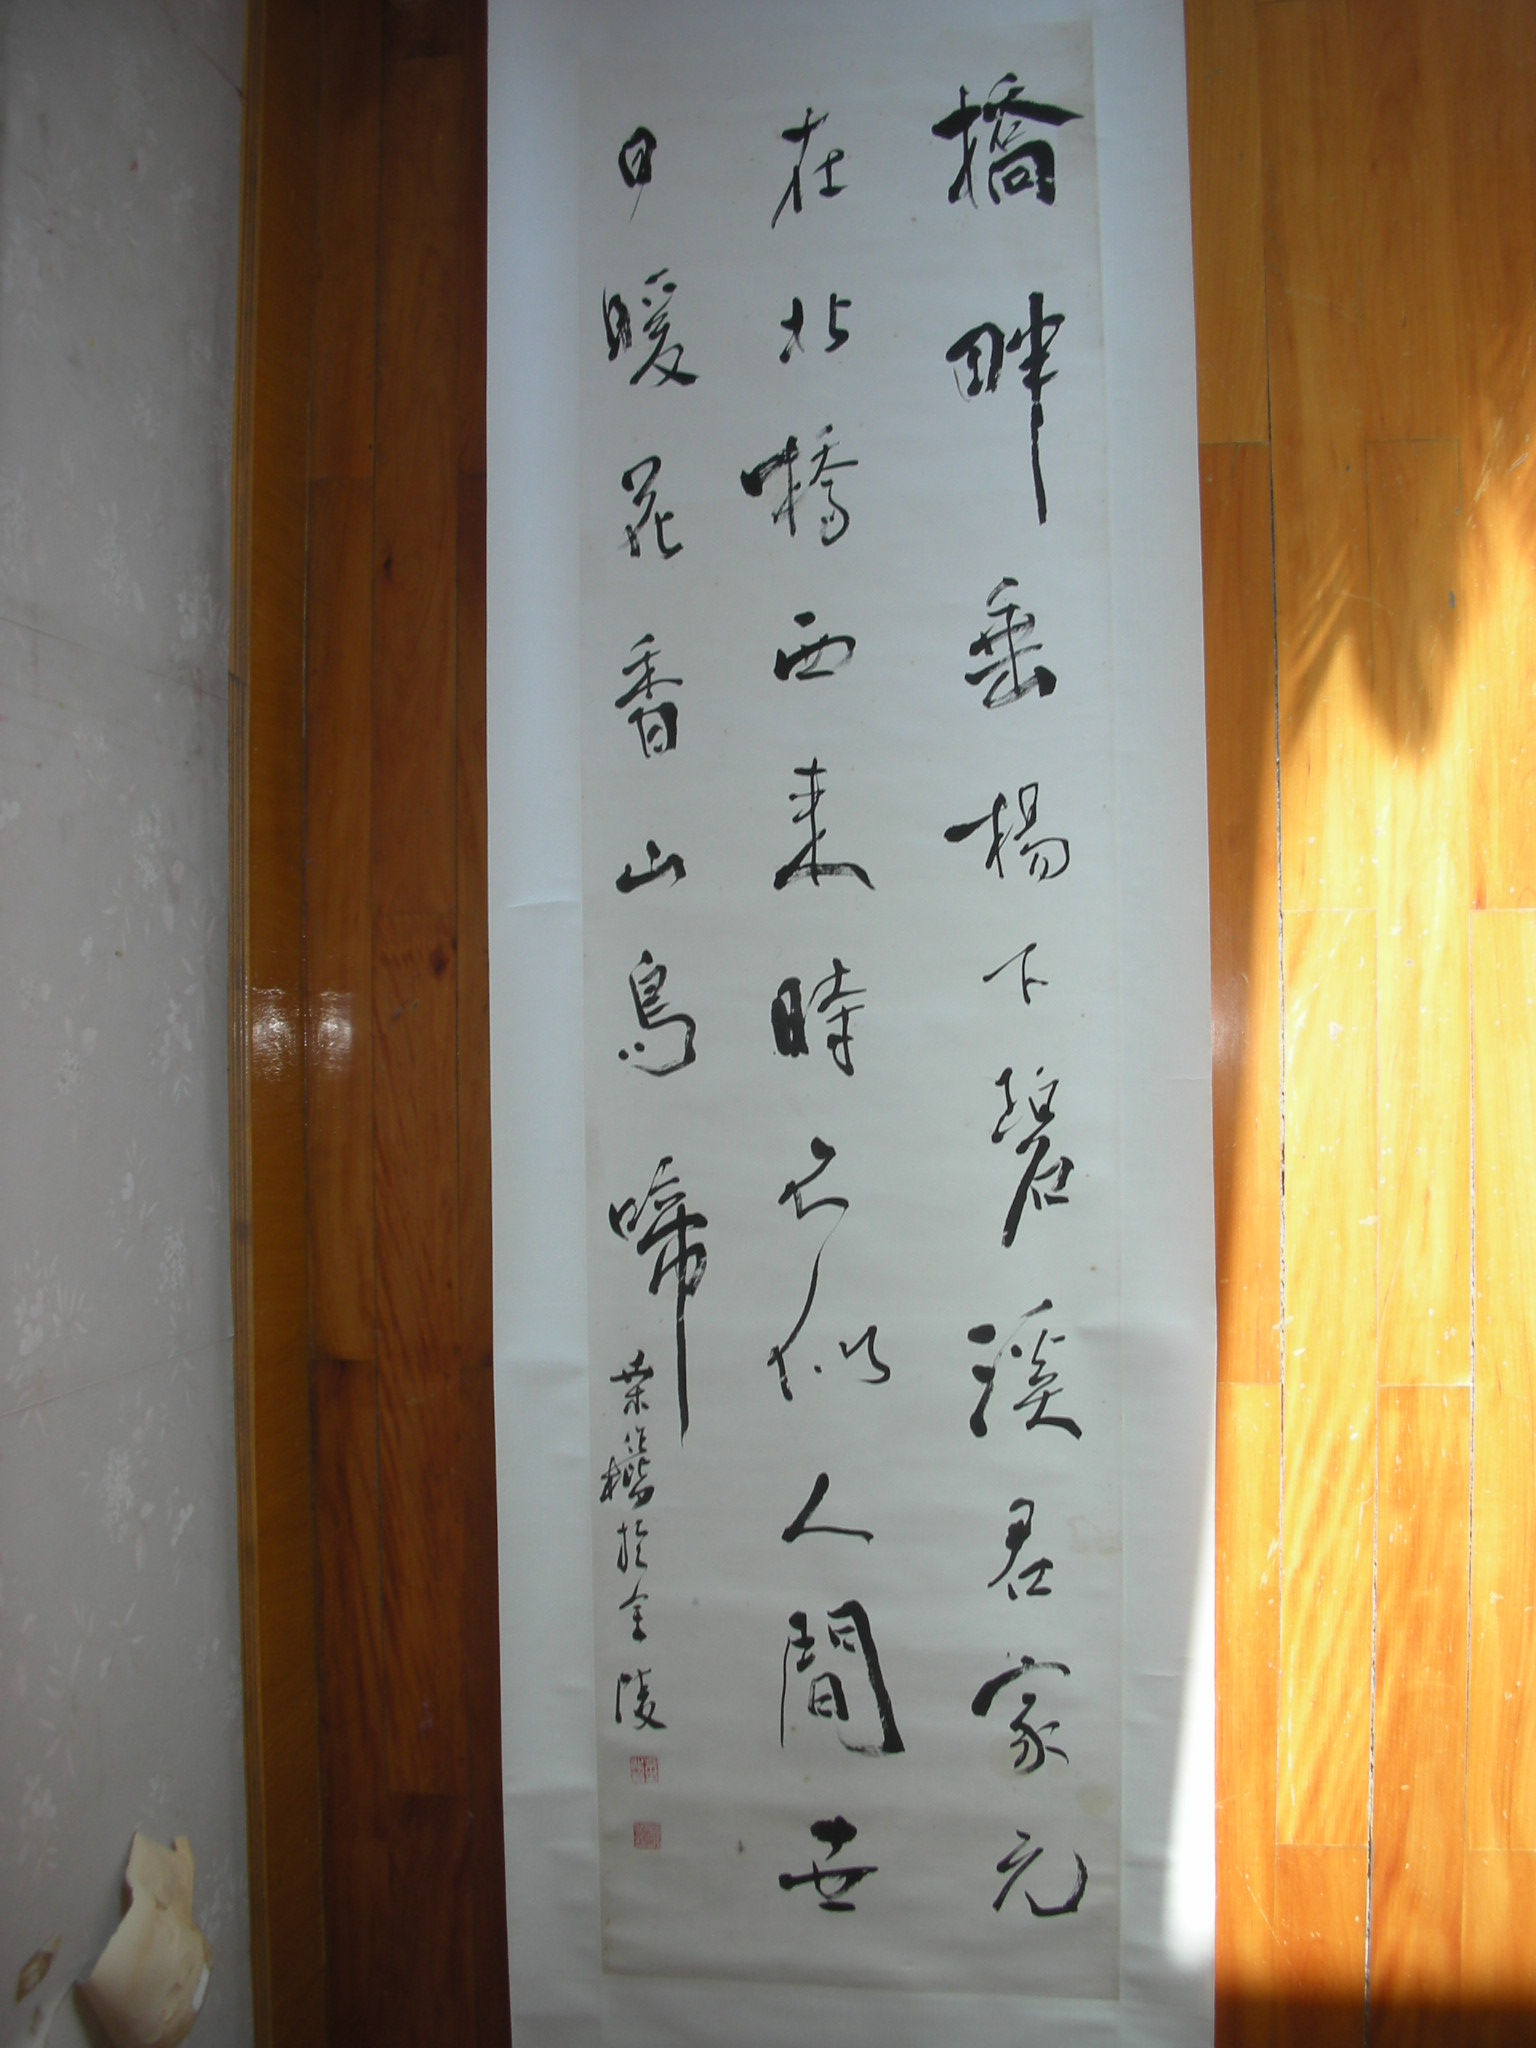 橋畔垂楊下碧溪君家元
在北橋西来時不似人間世
日暖花香山鳥啼
於金陵